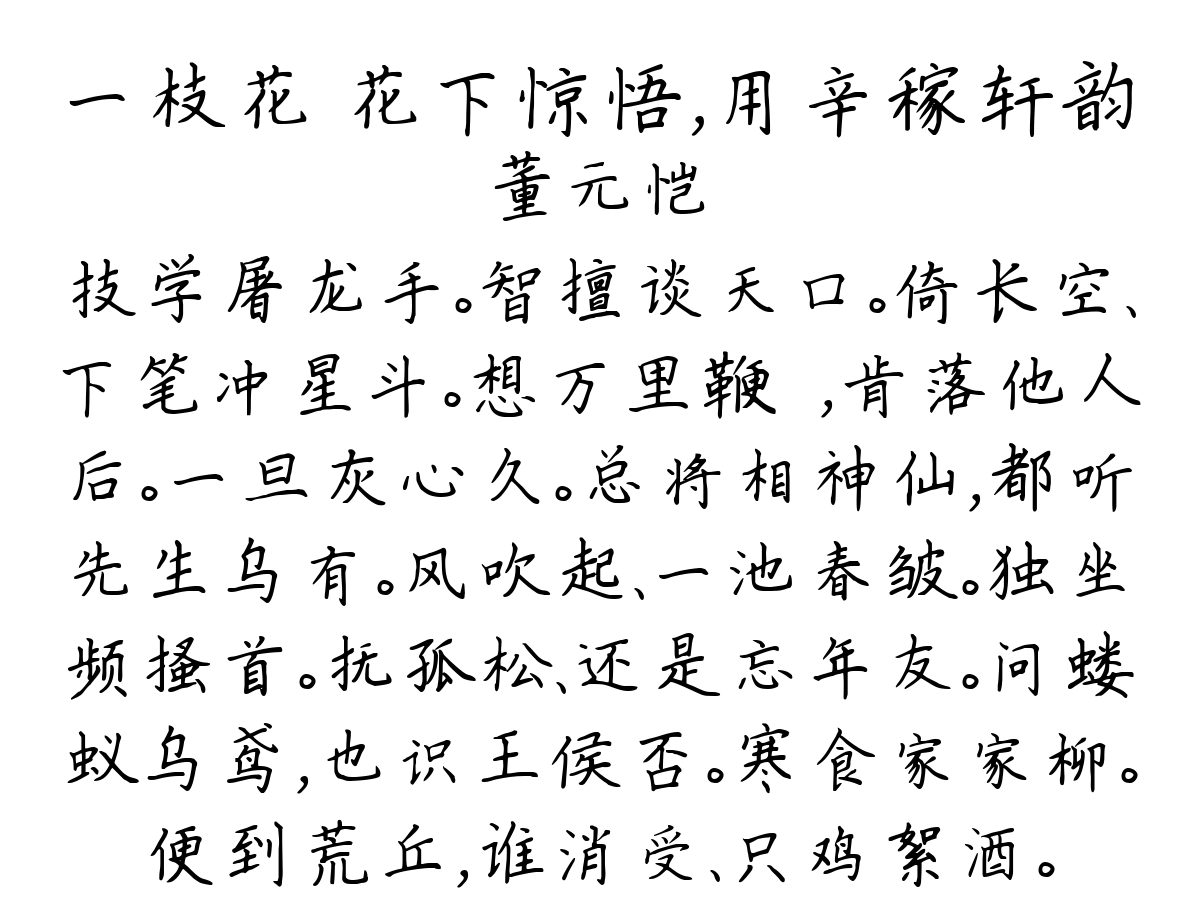 一枝花 花下惊悟,用辛稼轩韵
董元恺
技学屠龙手。智擅谈天口。倚长空、
下笔冲星斗。想万里鞭 ,肯落他人
后。一旦灰心久。总将相神仙,都听
先生乌有。风吹起、一池春皱。独坐
频搔首。抚孤松、还是忘年友。问蝼
蚁乌鸢,也识王侯否。寒食家家柳。
便到荒丘,谁消受、只鸡絮酒。